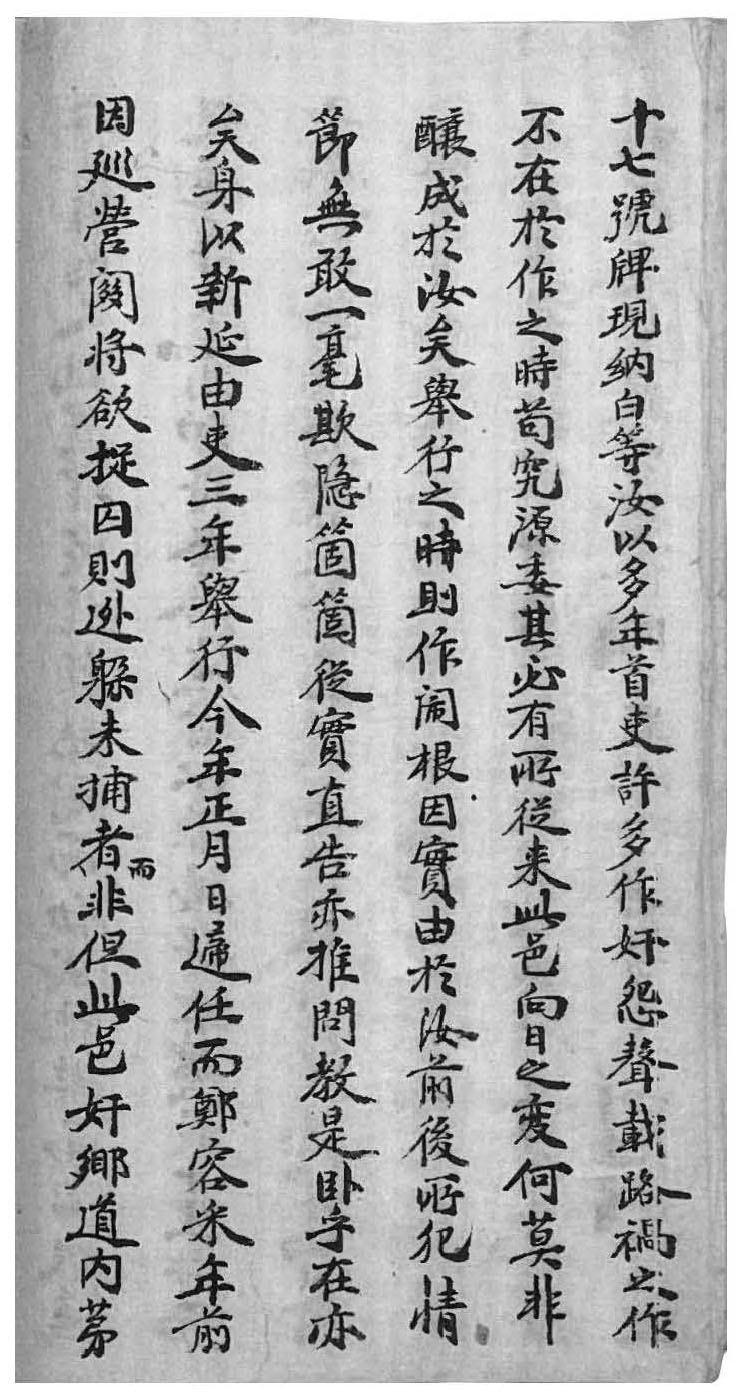 十七號牌現納白等汝以多年首吏許多作奸怨聲載路禍之作
不在於作之時苟究源委其必有所從来此邑向日之変何莫非
釀成於汝矣舉行之時則作鬧根因實由於汝前後所犯情
節無敢一毫欺隐箇箇從實直告亦推問教是卧乎在亦
矣身以新延由吏三年舉行今年正月日遞任而鄭容采年前
因巡營関將欲捉囚則逊躱未捕者而非但此邑奸鄉道内第